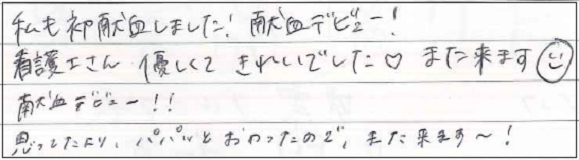 私も初献血しました! 献血デビュー!
看護士さん 優しくて きれいでした♡ また来ます☺
献血デビュー!!
思ったより、パパッと おわったので、また来ます〜!